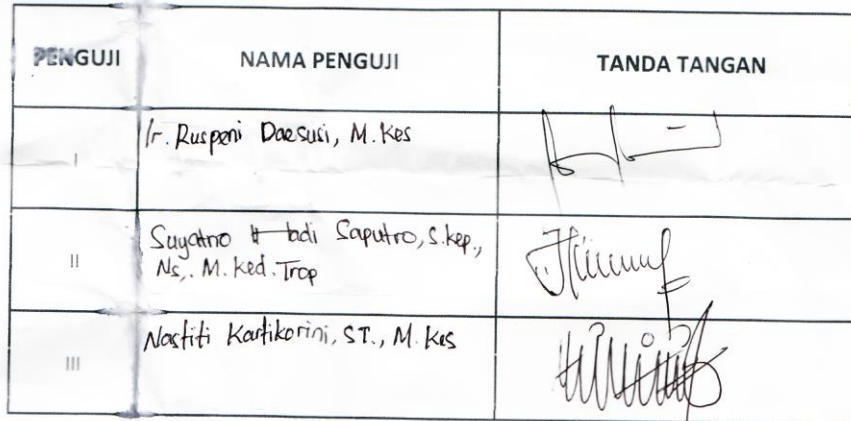 PENGUJI NAMA PENGUJI TANDA TANGAN
I Ir. Ruspeni Daesusi, M.Kes
II Suyatno Hadi Saputro, S.Kep.,
Ns,. M.Ked.Trop
III Nastiti Kartikorini, ST., M.Kes